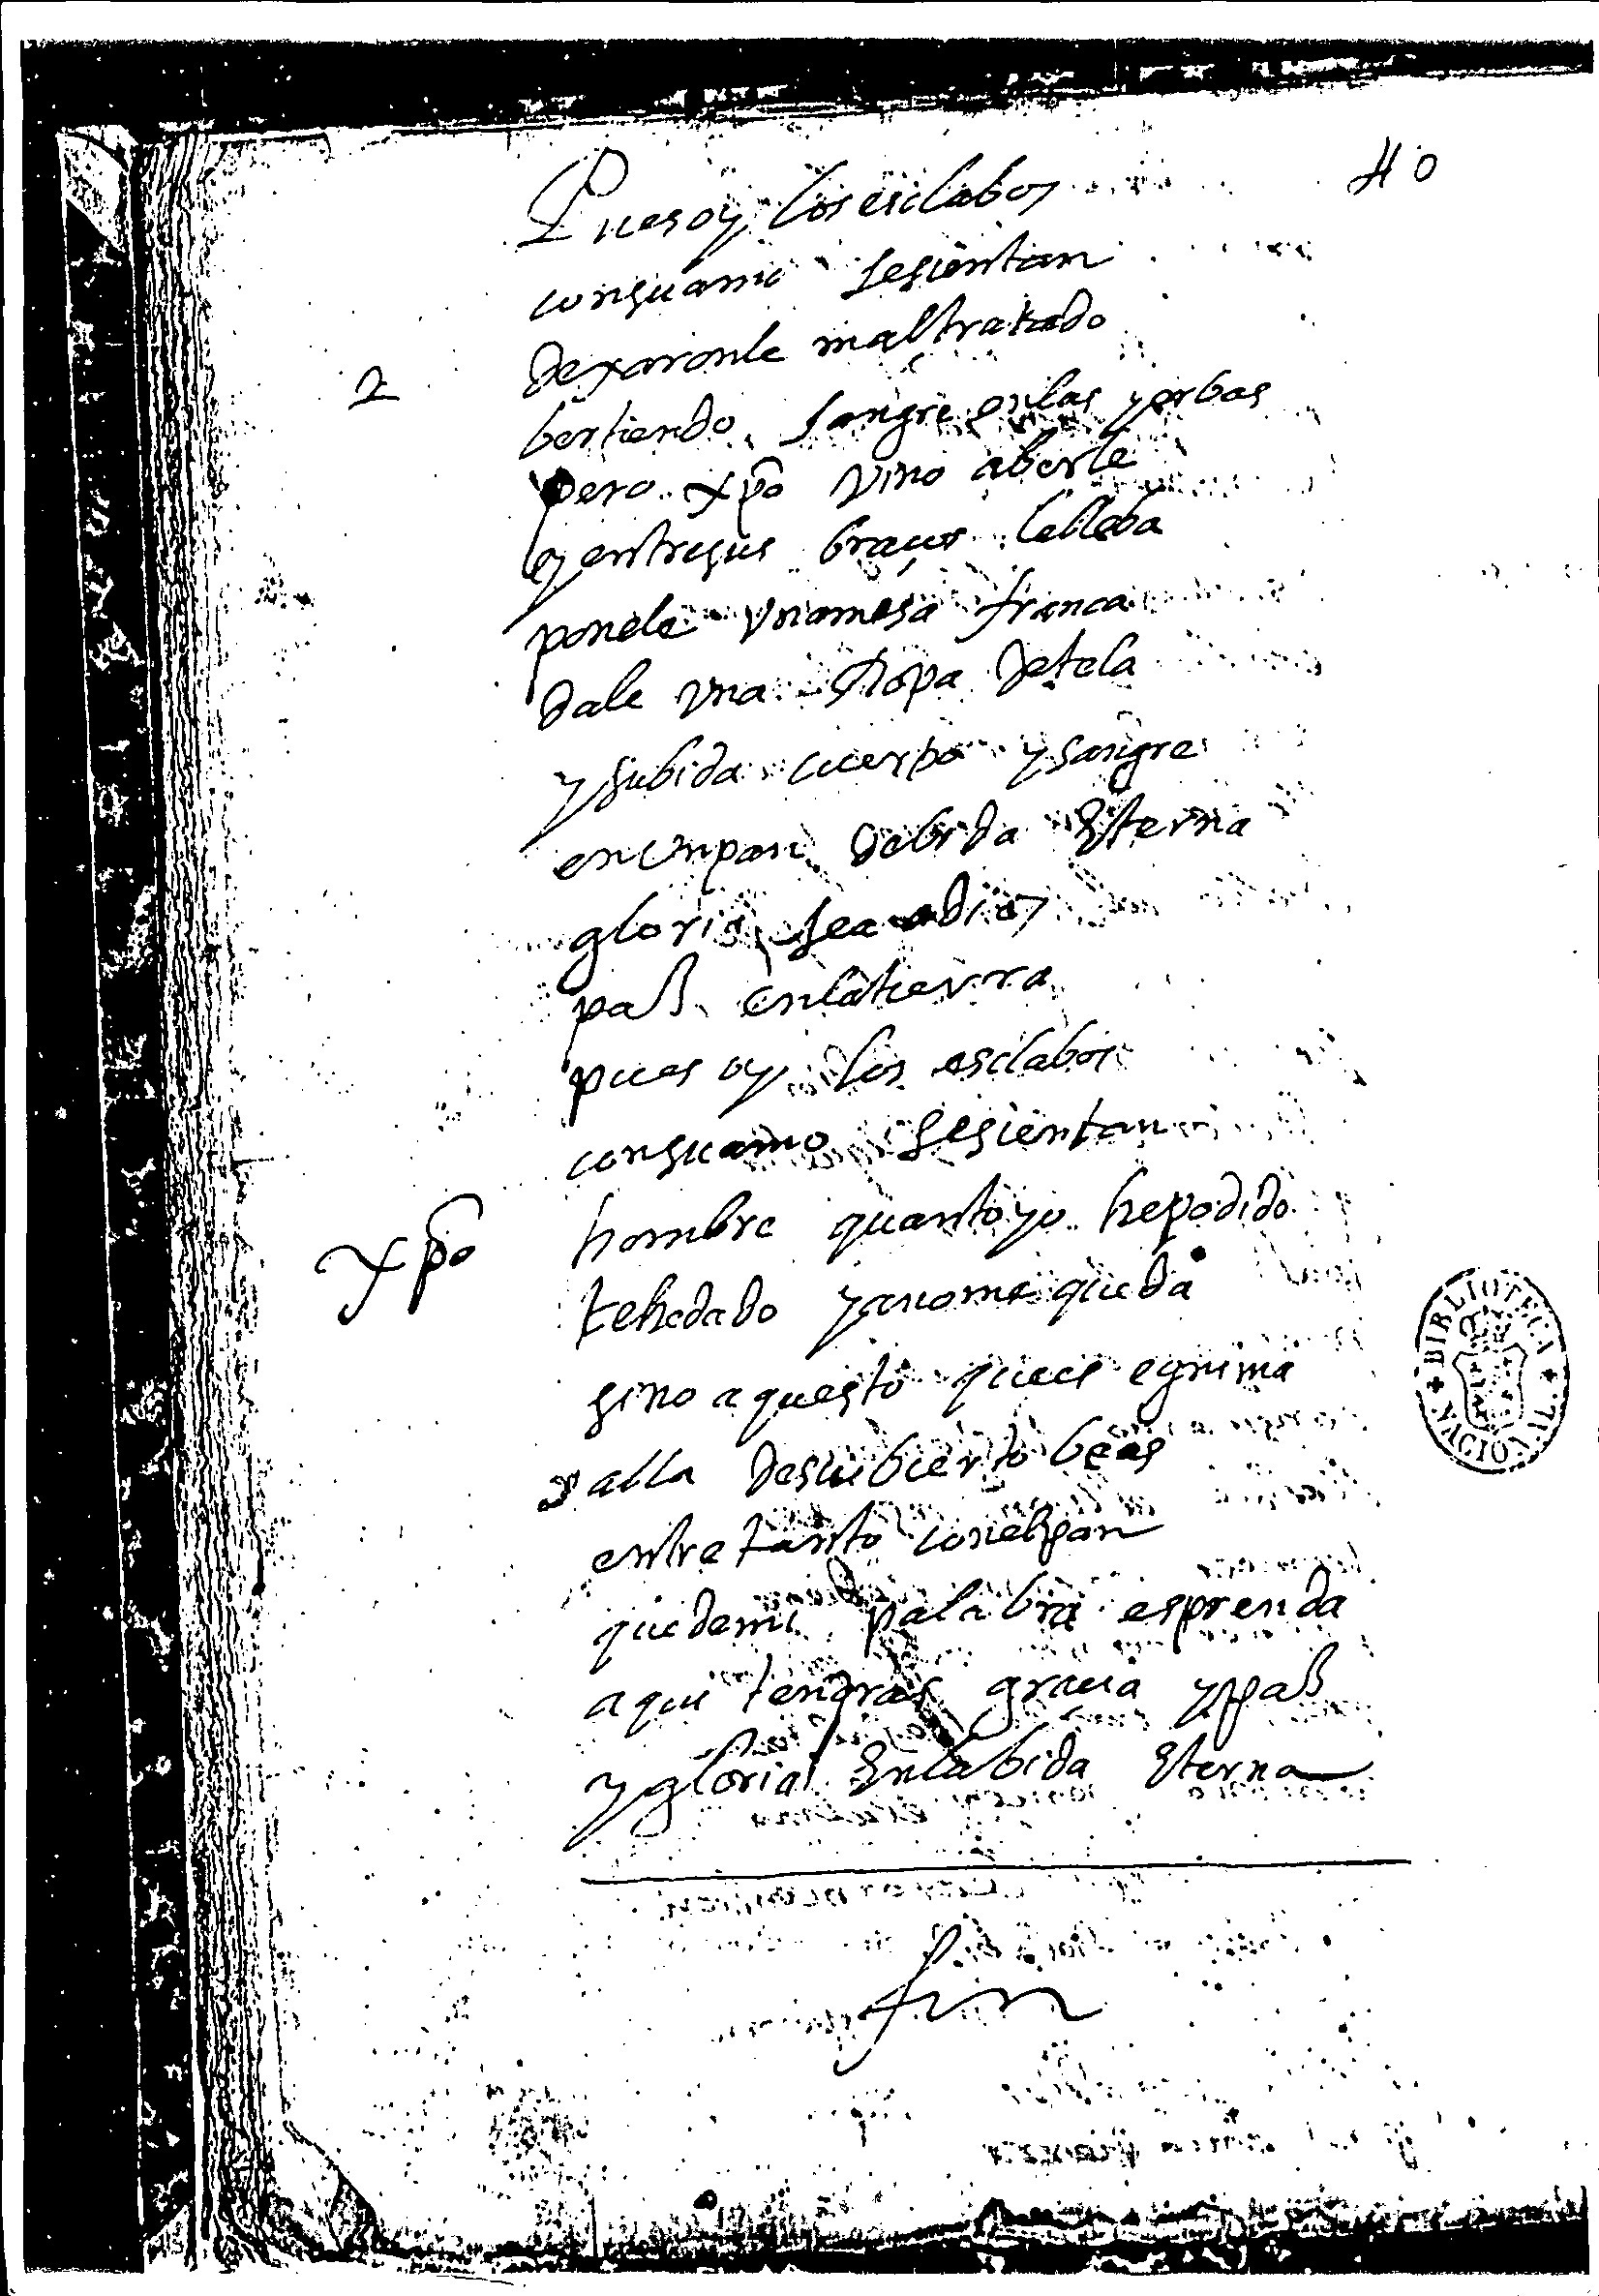 40
Pues oy los esclabos
con su amo se sientan
2 dexaronle maltratado
bertiendo sangre en las yerbas
pero xpo vino a berle
y entre sus braços le lleba
ponele vna mesa franca
dale vna Ropa de tela
y su bida cuerpo y sangre
en vn pan de bida Eterna
gloria sea a dios
paß en la tierra
pues oy los esclabos
con su amo se sientan
xpo hombre quanto yo he podido
te he dado ya no me queda
sino aquesto que es
alla descubierto beas
entre tanto con el pan
que de mi palabra es prenda
aqui tendras gracia y paß
y gloria En la bida Eterna
fin
BIBLIOTECA NACIONAL